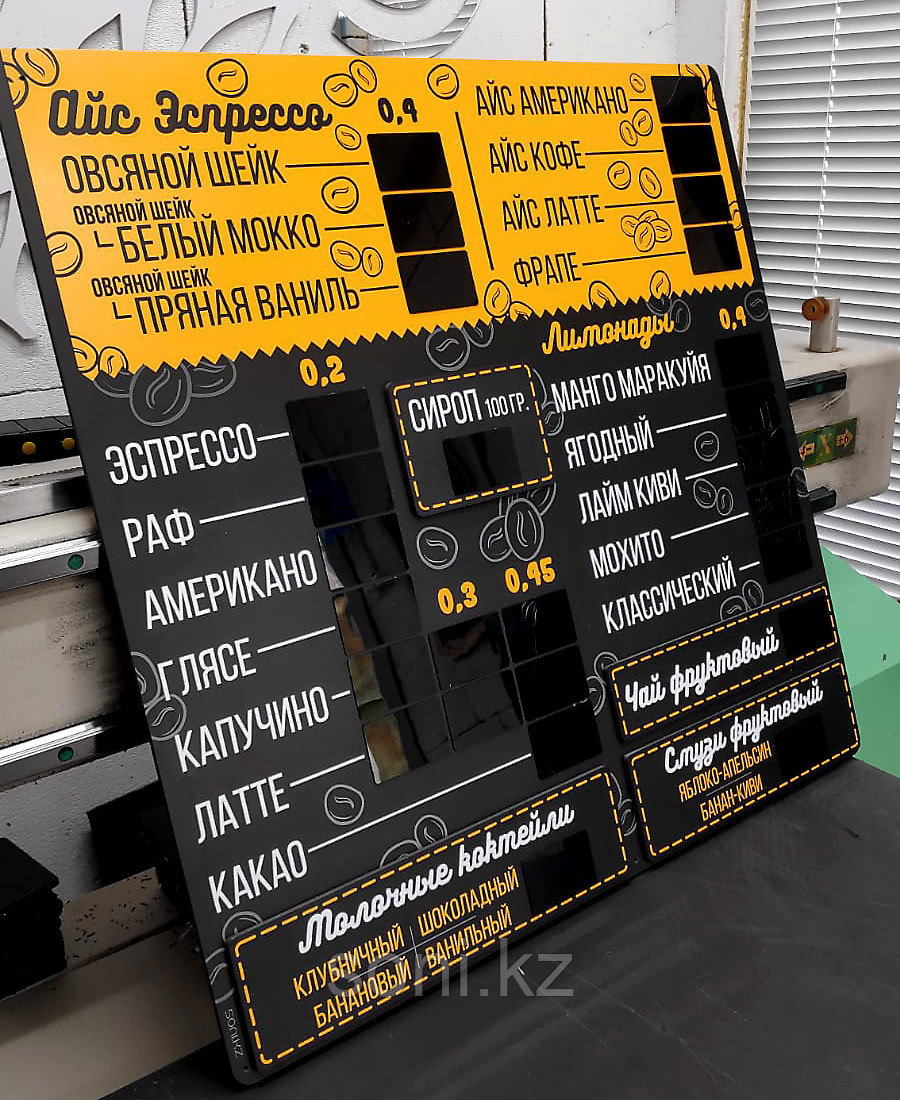 Айс Эспрессо 0,4
ОВСЯНОЙ ШЕЙК
ОВСЯНОЙ ШЕЙК
БЕЛЫЙ МОККО
ОВСЯНОЙ ШЕЙК
ПРЯНАЯ ВАНИЛЬ
АЙС АМЕРИКАНО
АЙС КОФЕ
АЙС ЛАТТЕ
ФРАПЕ
0,2
ЭСПРЕССО
РАФ
АМЕРИКАНО
ГЛЯСЕ
КАПУЧИНО
ЛАТТЕ
КАКАО
СИРОП 100 ГР.
0,3 0,45
Лимонады 0,4
МАНГО МАРАКУЙЯ
ЯГОДНЫЙ
ЛАЙМ КИВИ
МОХИТО
КЛАССИЧЕСКИЙ
Чай фруктовый
Смузи фруктовый
ЯБЛОКО-АПЕЛЬСИН
БАНАН-КИВИ
Молочные коктейли
КЛУБНИЧНЫЙ ШОКОЛАДНЫЙ
БАНАНОВЫЙ ВАНИЛЬНЫЙ
soni.kz
soni.kz